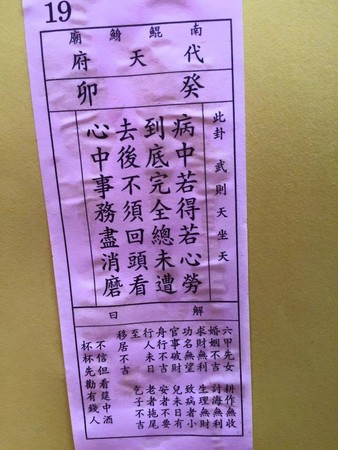 19
南鯤鯓廟
代天府
癸卯
此卦 武則天坐天
病中若得若心勞
到底完全總未遭
去後不須回頭看
心中事務盡消磨
解曰
六甲先女 耕作無收
婚姻不吉 討海無利
求財無利 生理無財
功名無望 致病者小
官事破財 兒未日有
舟行不吉 安者不要
行人未日 老者拖尾
至 乞子不吉
移居不吉
不信但看筵中酒
杯杯先勸有錢人